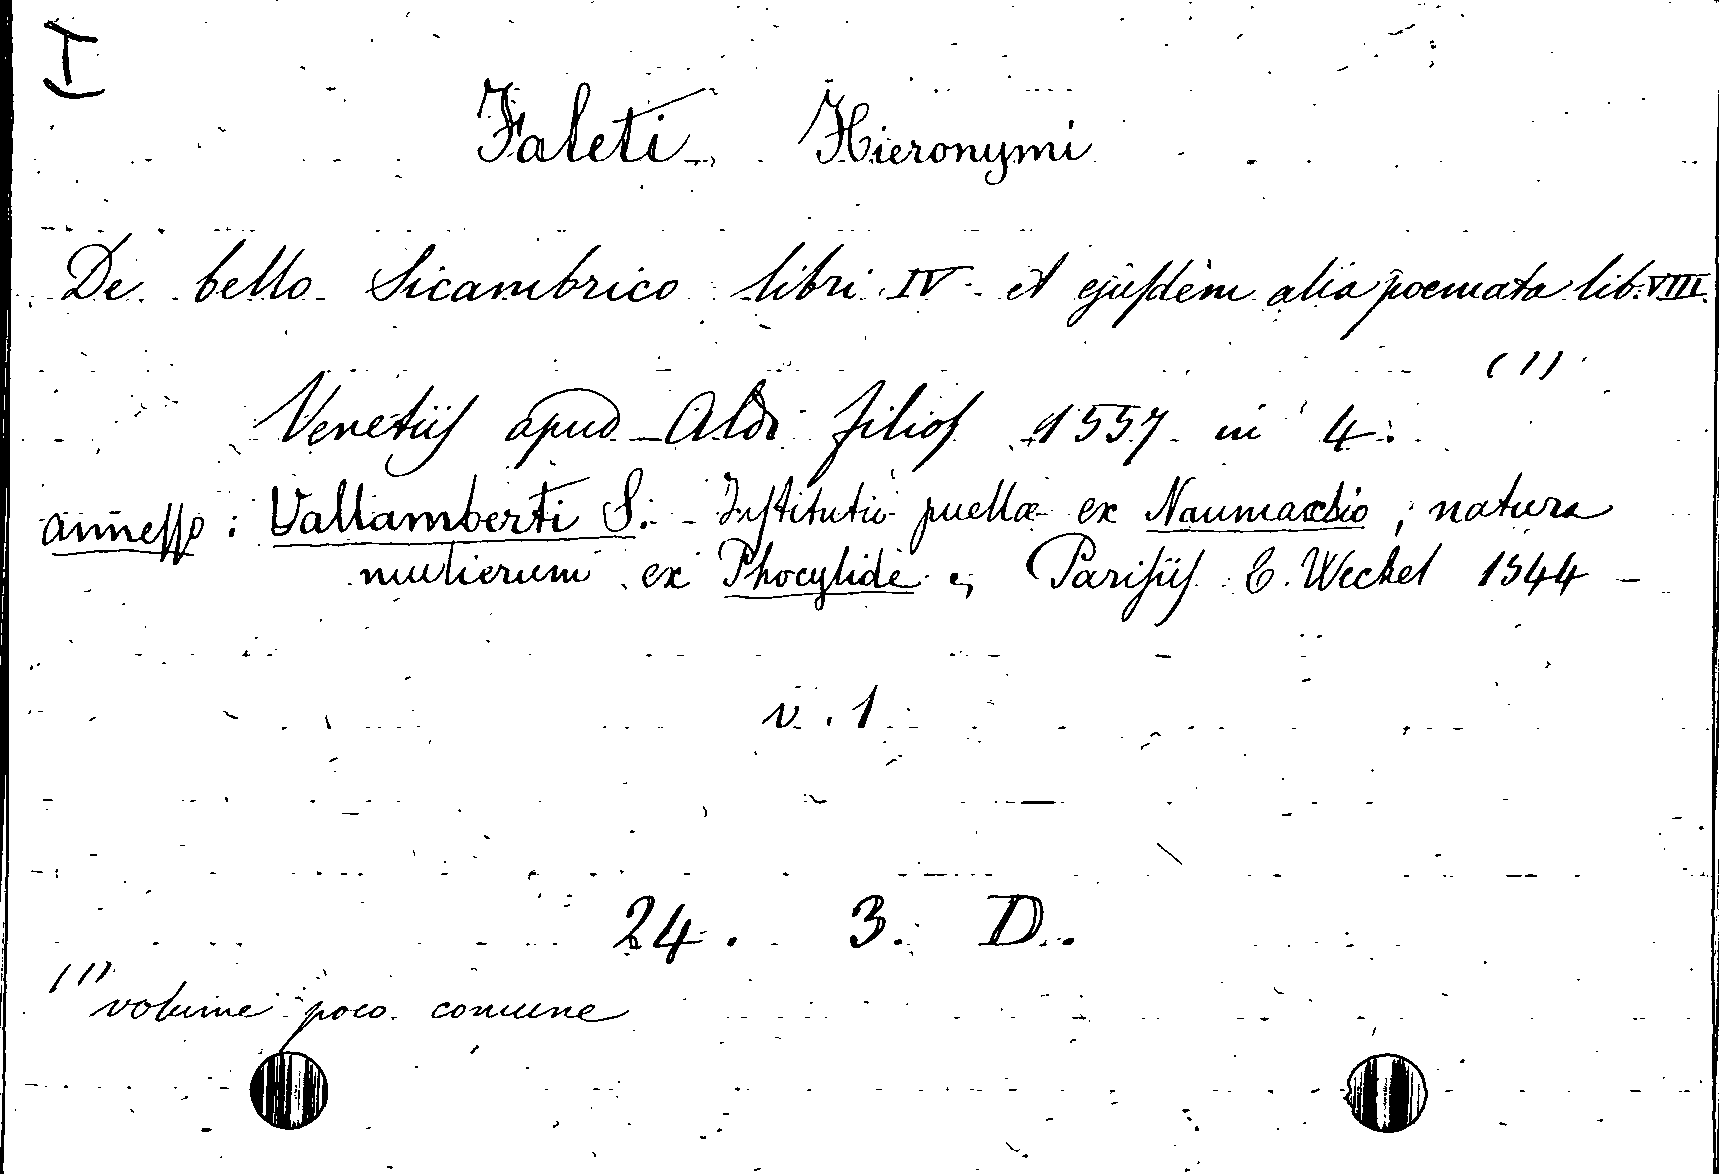 I
Faleti Hieronymi
De bello Sicambrico libri IV et ejusdem alia poemata lib. VIII.
(1)
Venetiis apud Aldi filios 1557 in 4.
annesso : Vallamberti S. - Institutio puellæ ex Naumachio ; natura
mulierum ex Phocylide ; Parisiis C. Wechel 1544 -
v. 1
24. 3. D.
(1) volume poco comune